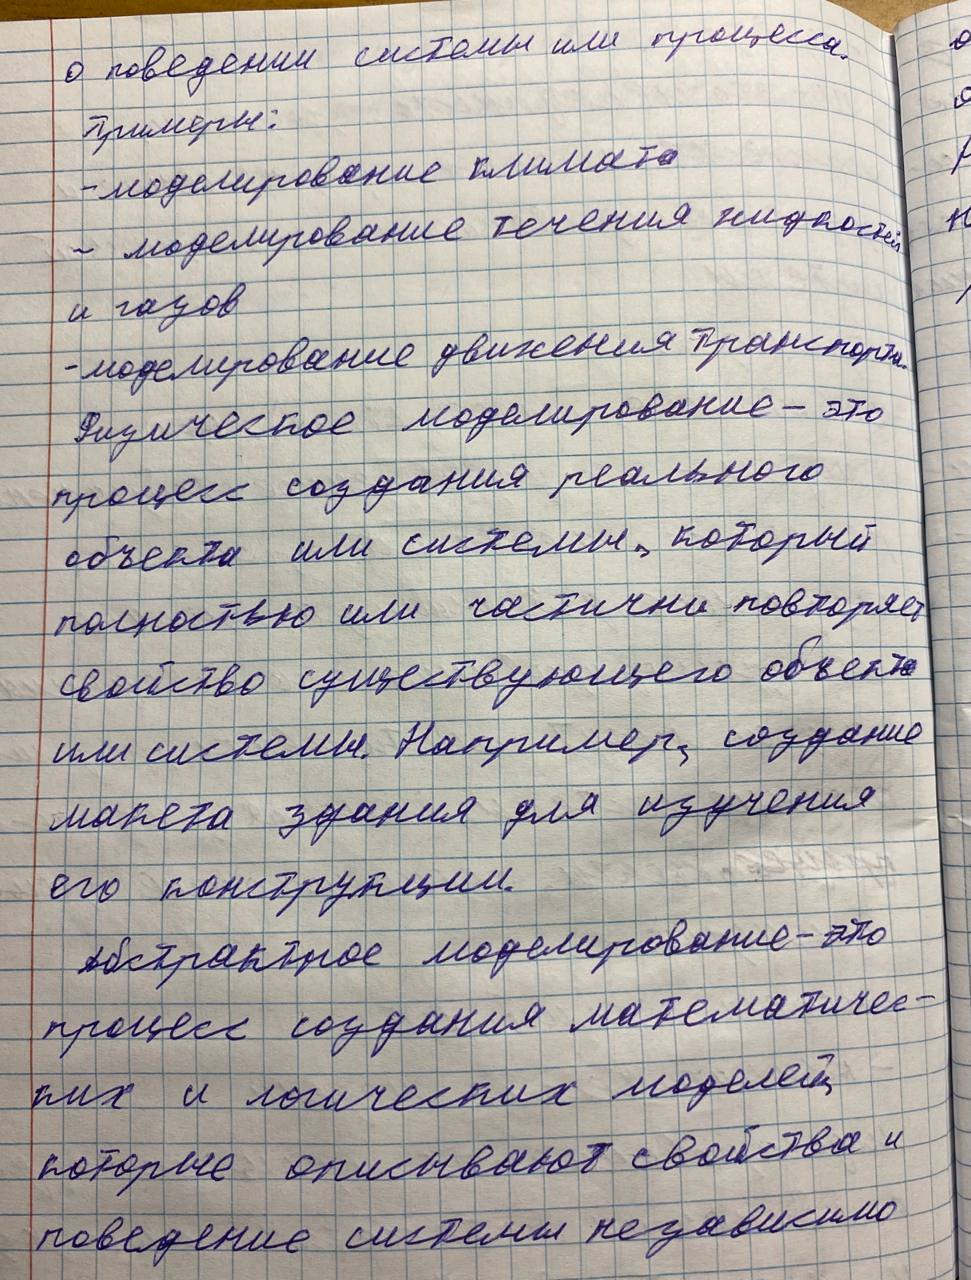 о поведении системы или процесса.
Примеры:
- моделирование климата
- моделирование течения жидкостей
и газов
- моделирование движения транспорта.
Физическое моделирование - это
процесс создания реального
объекта или системы, который
полностью или частични повторяет
свойство существующего объекта
или системы. Например, создание
макета здания для изучения
его конструкции.
Абстрактное моделирование - это
процесс создания математичес-
ких и логических моделей,
которые описывают свойства и
поведение системы независимо